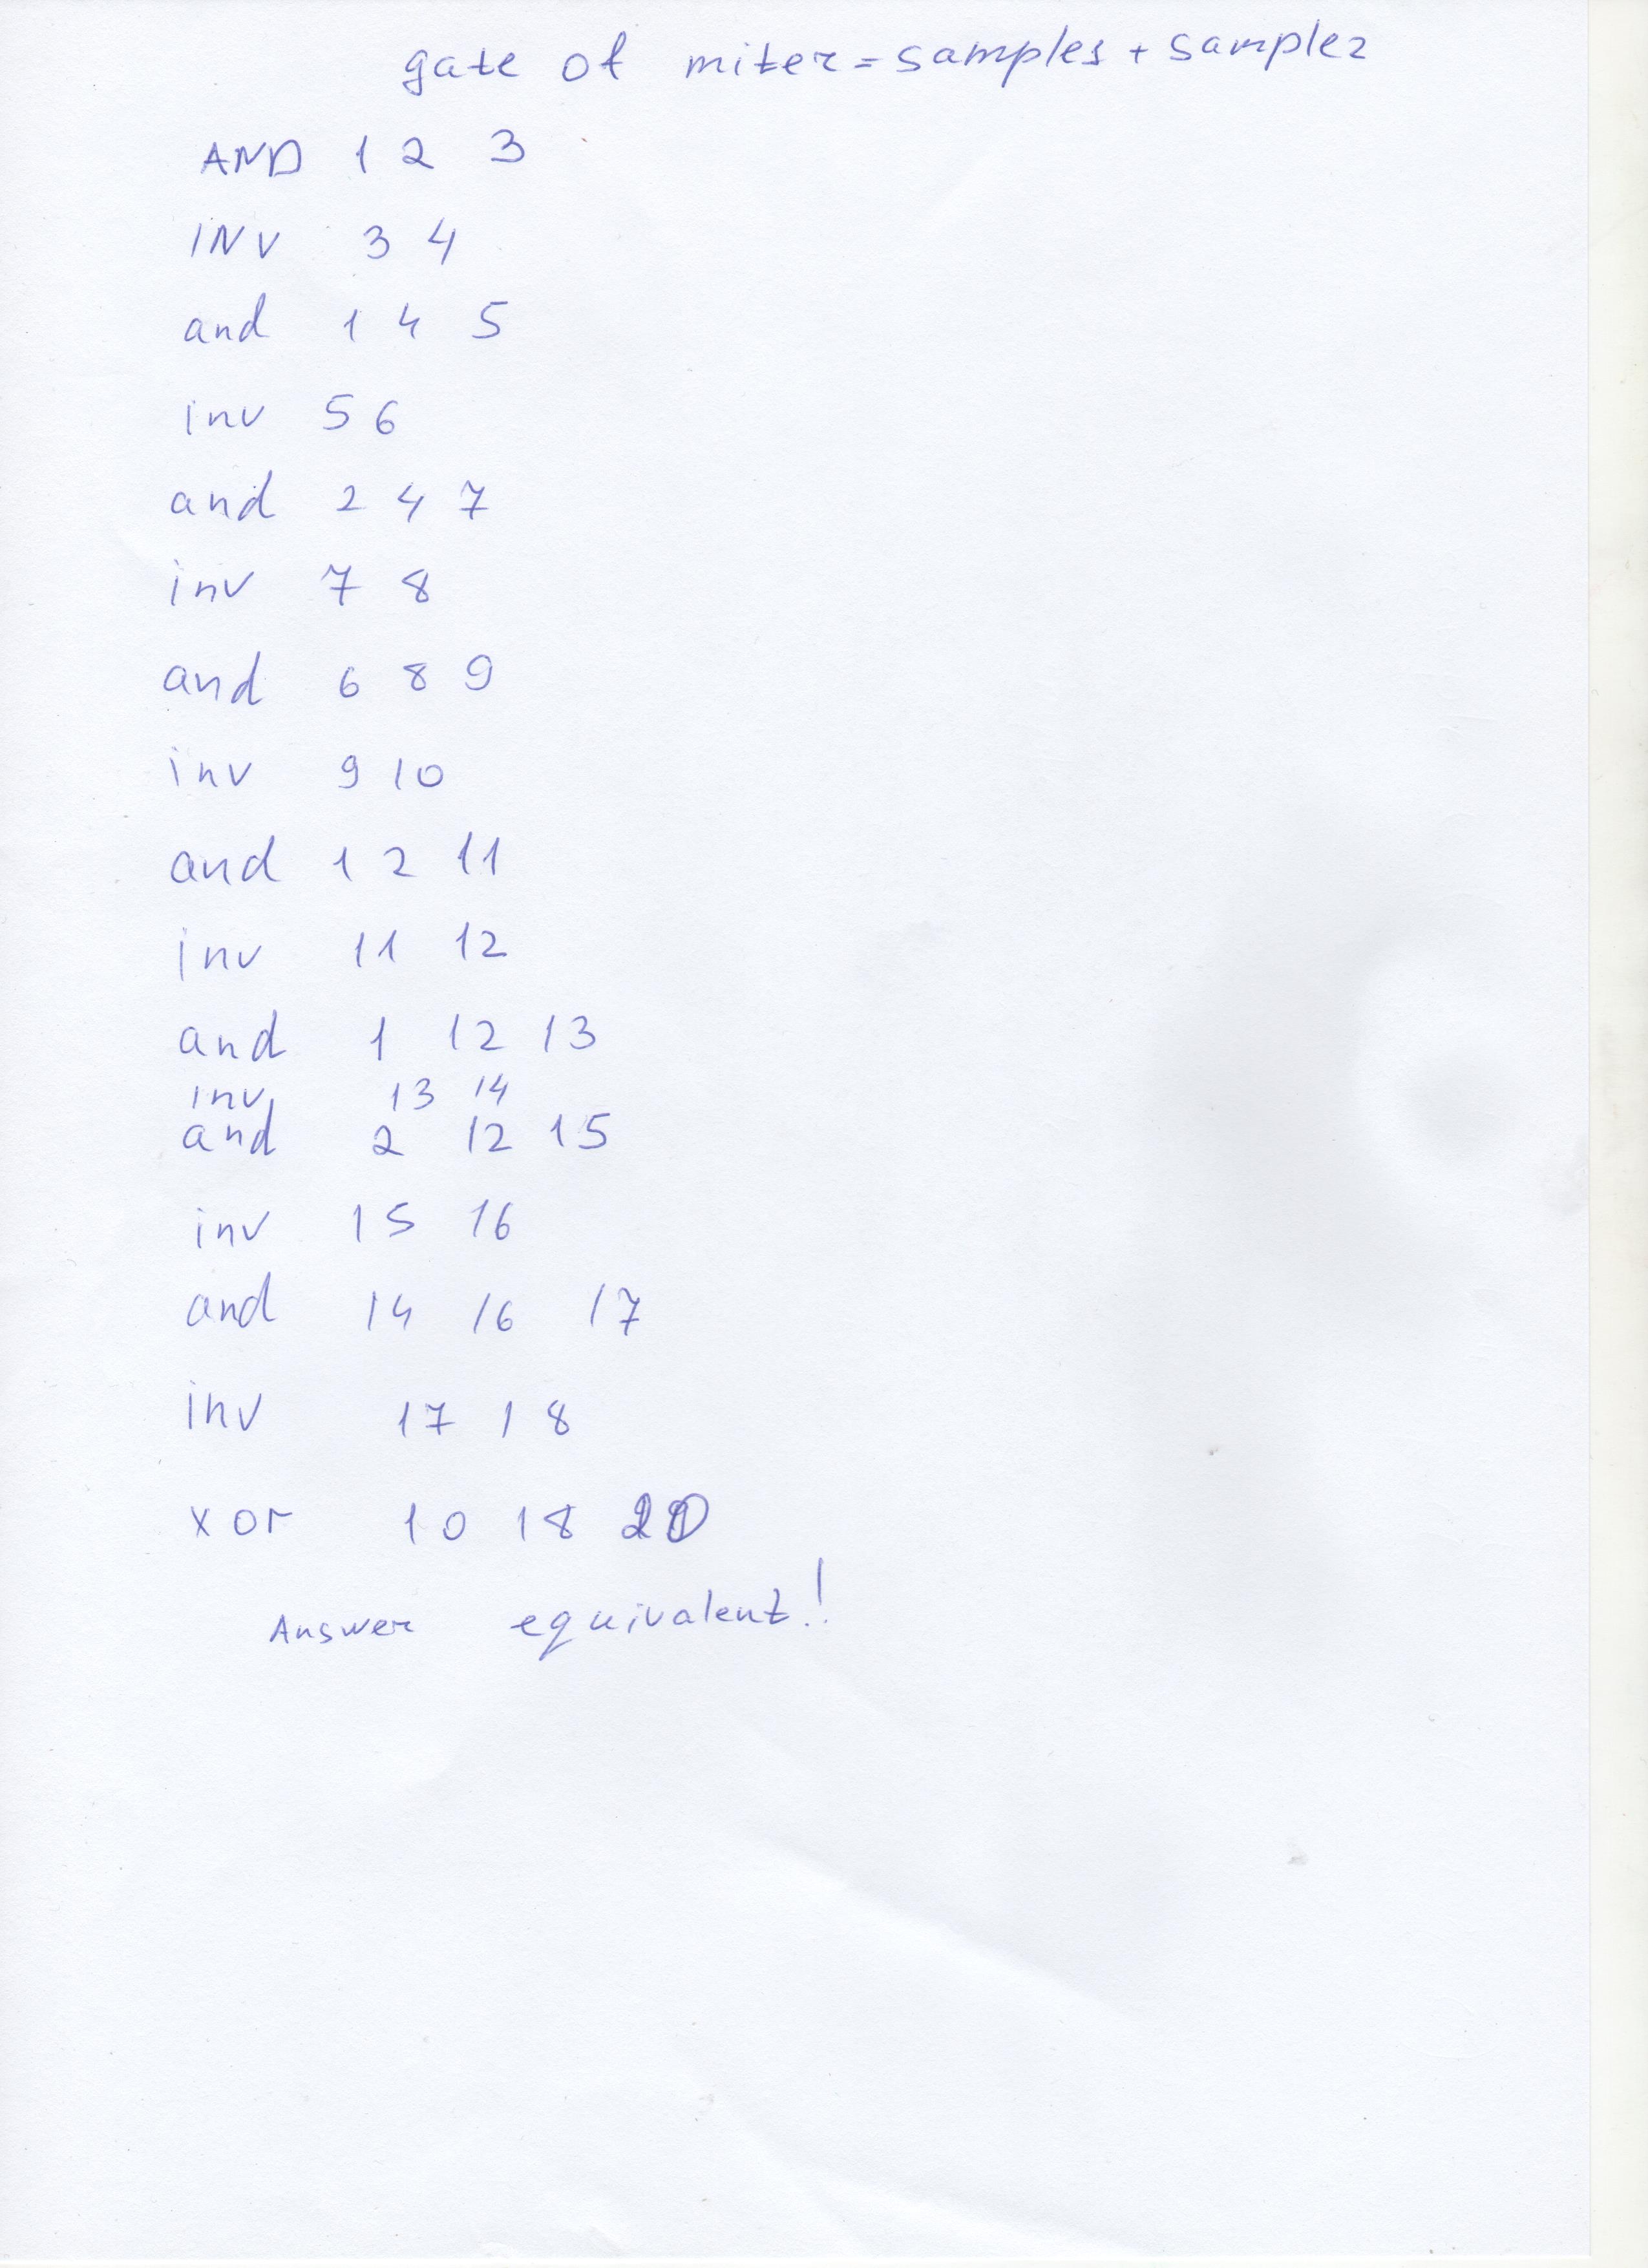 gate of miter = samples + sample2
AND 1 2 3
INV 3 4
and 1 4 5
inv 5 6
and 2 4 7
inv 7 8
and 6 8 9
inv 9 10
and 1 2 11
inv 11 12
and 1 12 13
inv 13 14
and 2 12 15
inv 15 16
and 14 16 17
inv 17 18
xor 10 18
Answer equivalent!